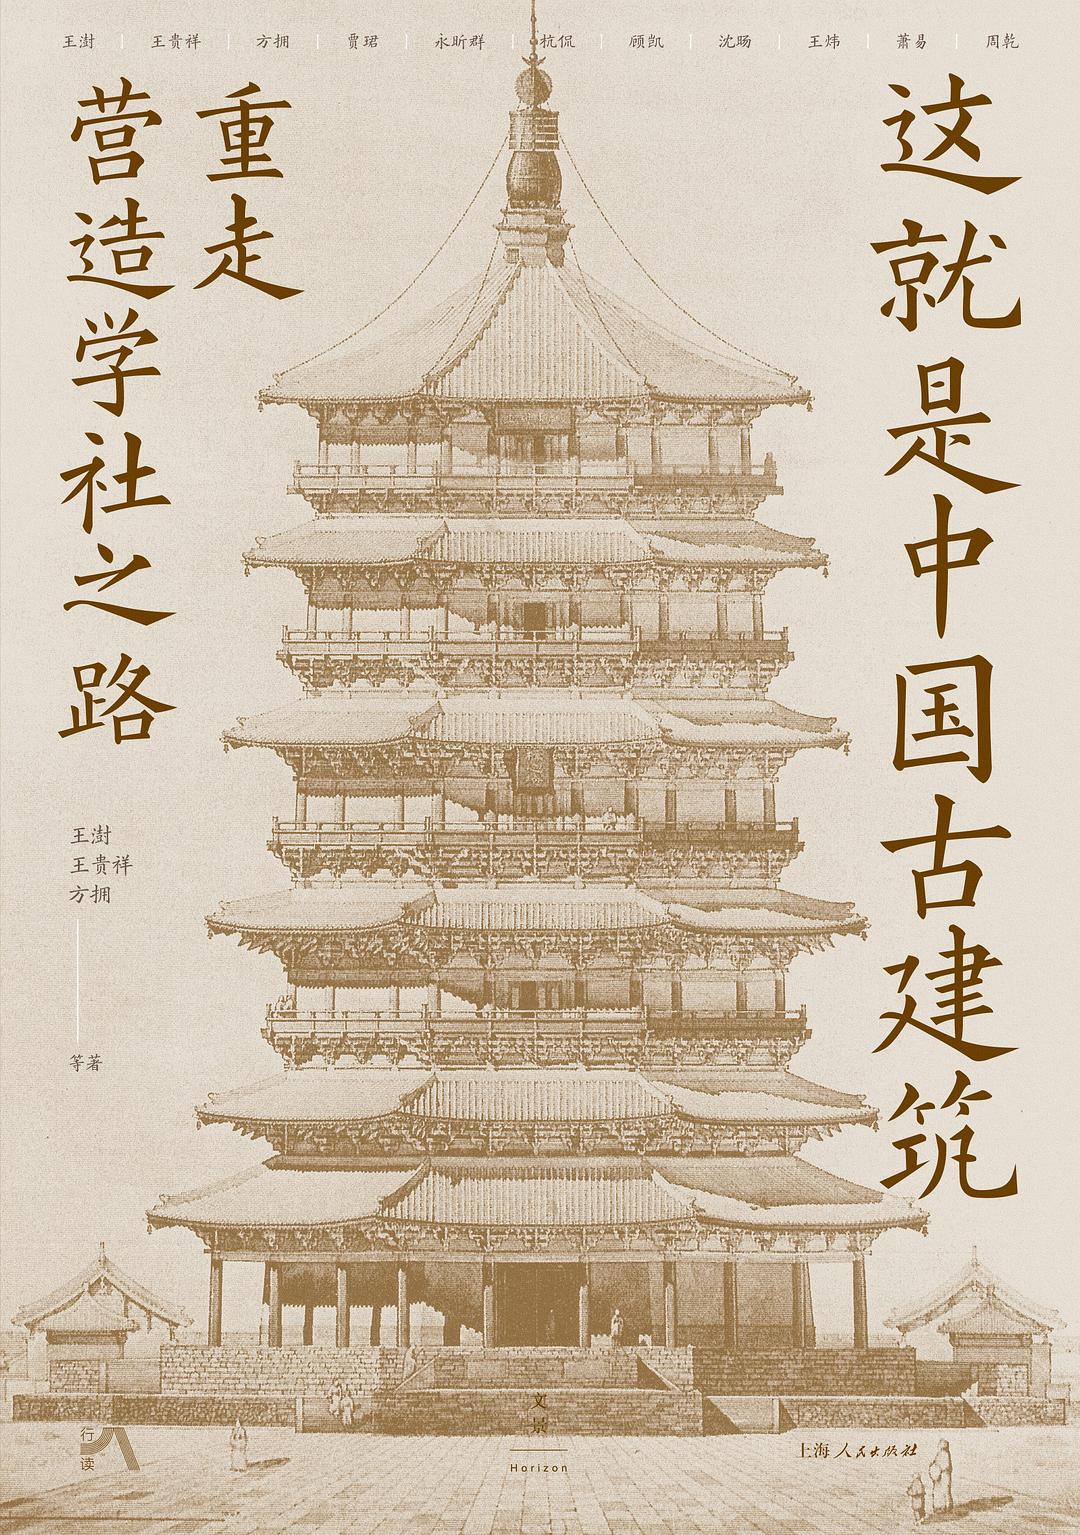 王澍 王贵祥 方拥 贾珺 永昕群 杭侃 顾凯 沈旸 王炜 萧易 周乾
这就是中国古建筑
重走
营造学社之路
王澍
王贵祥
方拥
等著
行读
文景
Horizon
上海人民出版社